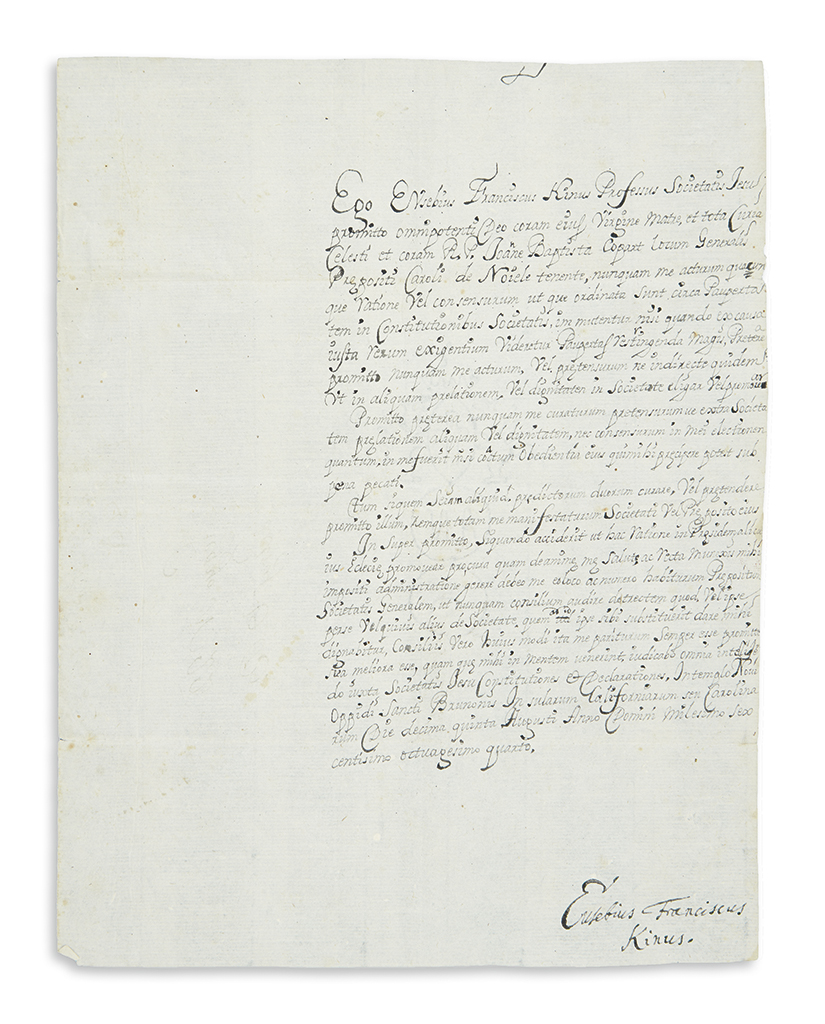 Ego Eusebius Franciscus Kinus Professus Societatis Iesu
promitto omnipotenti Deo coram eius Virgine Matre, et tota Curia
Celesti et coram R. P. Joāne Baptista Copart locum Generalis
Prepositi Caroli de Noiele tenente, nunquam me acturum quacun
que Ratione Vel consensurum ut que ordinata sunt circa Pauperta
tem in Constitutionibus Societatis, im mutentur nisi quando ex causa
iusta Rerum exigentium Videretur Paupertas restringenda Magis, Preterea
promitto nunquam me acturum, Vel, pretensurum ne indirecte quidem
Vt in aliquam prelationem, Vel dignitatem in Societate eligar Vel promouear
Promitto preterea nunquam me curaturum pretensurumue extra Societa
tem prelationem aliquam Vel dignitatem, nec consensurum in mei electionem
quantum, in me fuerit nisi coactum Obedientia eius qui mihi precipere potest sub
pena pecati.
Tum siquem Sciam aliquid predictorum duorum curare, Vel pretendere
promitto illum, Remque totam me manifestaturum Societati Vel Preposito eius
In super promitto, Siquando acciderit ut hac Ratione in Presidem alicu
ius Eclecie promouear procura quam de anime me Salute ac Recta Muneris mihi
impositi administratione gerere debeo me eo loco ac numero habiturum Prepositum
Societatis Generalem, ut nunquam consilium audire detrectem quod Vel ipse
perse Vel quiuis alius de Societate quem ipse sibi substituerit dare mihi
dignabitur, Consiliis Vero huius modi ita me pariturum Semper esse promitto
si ea meliora esse, quam que mihi in mentem uenerint, iudicabo omnia inteligē
do iuxta Societatis Iesu Constitutiones & Declarationes, In templo Noui
Oppidi Sancti Brunonis In sularum Californiarum seu Carolina
rum Die decima quinta Augusti Anno Domini Milesimo Sex
centisimo octuagesimo quarto.
Eusebius Franciscus
Kinus.